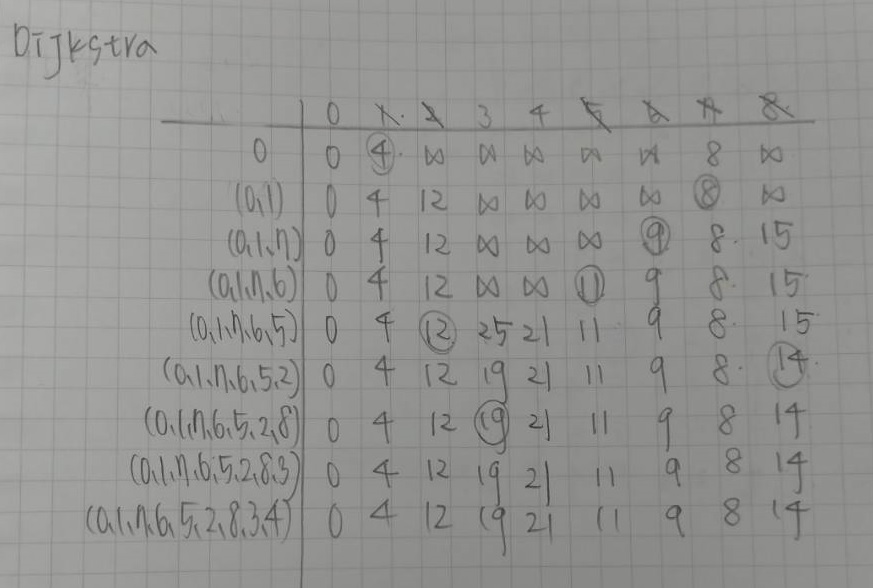 Dijkstra
0 1 2 3 4 5 6 7 8
0 0 4 ∞ ∞ ∞ ∞ ∞ 8 ∞
(0,1) 0 4 12 ∞ ∞ ∞ ∞ 8 ∞
(0,1,7) 0 4 12 ∞ ∞ ∞ 9 8 15
(0,1,7,6) 0 4 12 ∞ ∞ 11 9 8 15
(0,1,7,6,5) 0 4 12 25 21 11 9 8 15
(0,1,7,6,5,2) 0 4 12 19 21 11 9 8 14
(0,1,7,6,5,2,8) 0 4 12 19 21 11 9 8 14
(0,1,7,6,5,2,8,3) 0 4 12 19 21 11 9 8 14
(0,1,7,6,5,2,8,3,4) 0 4 12 19 21 11 9 8 14